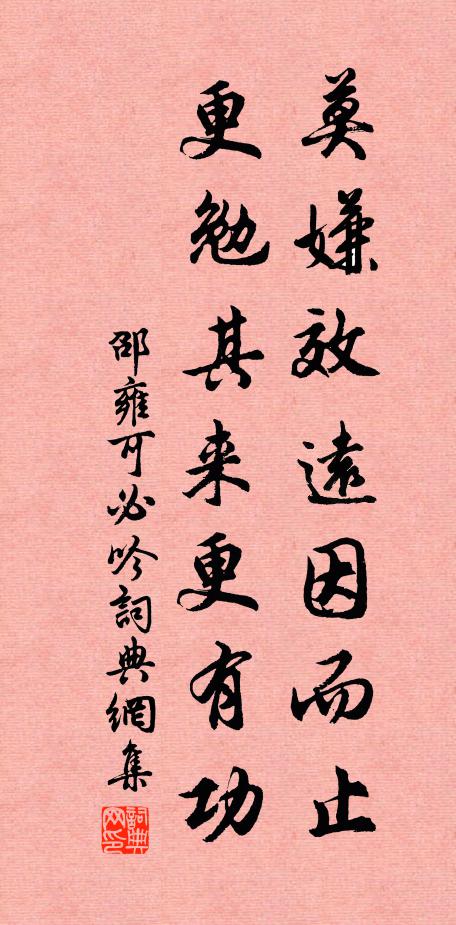 莫嫌效遠因而止
更勉其来更有功
邵雍可必吟詞典網集
詞典网印